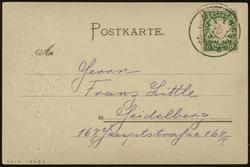 POSTKARTE.
An
Herrn
Franz Little
in Heidelberg
167 Hauptstraße 167